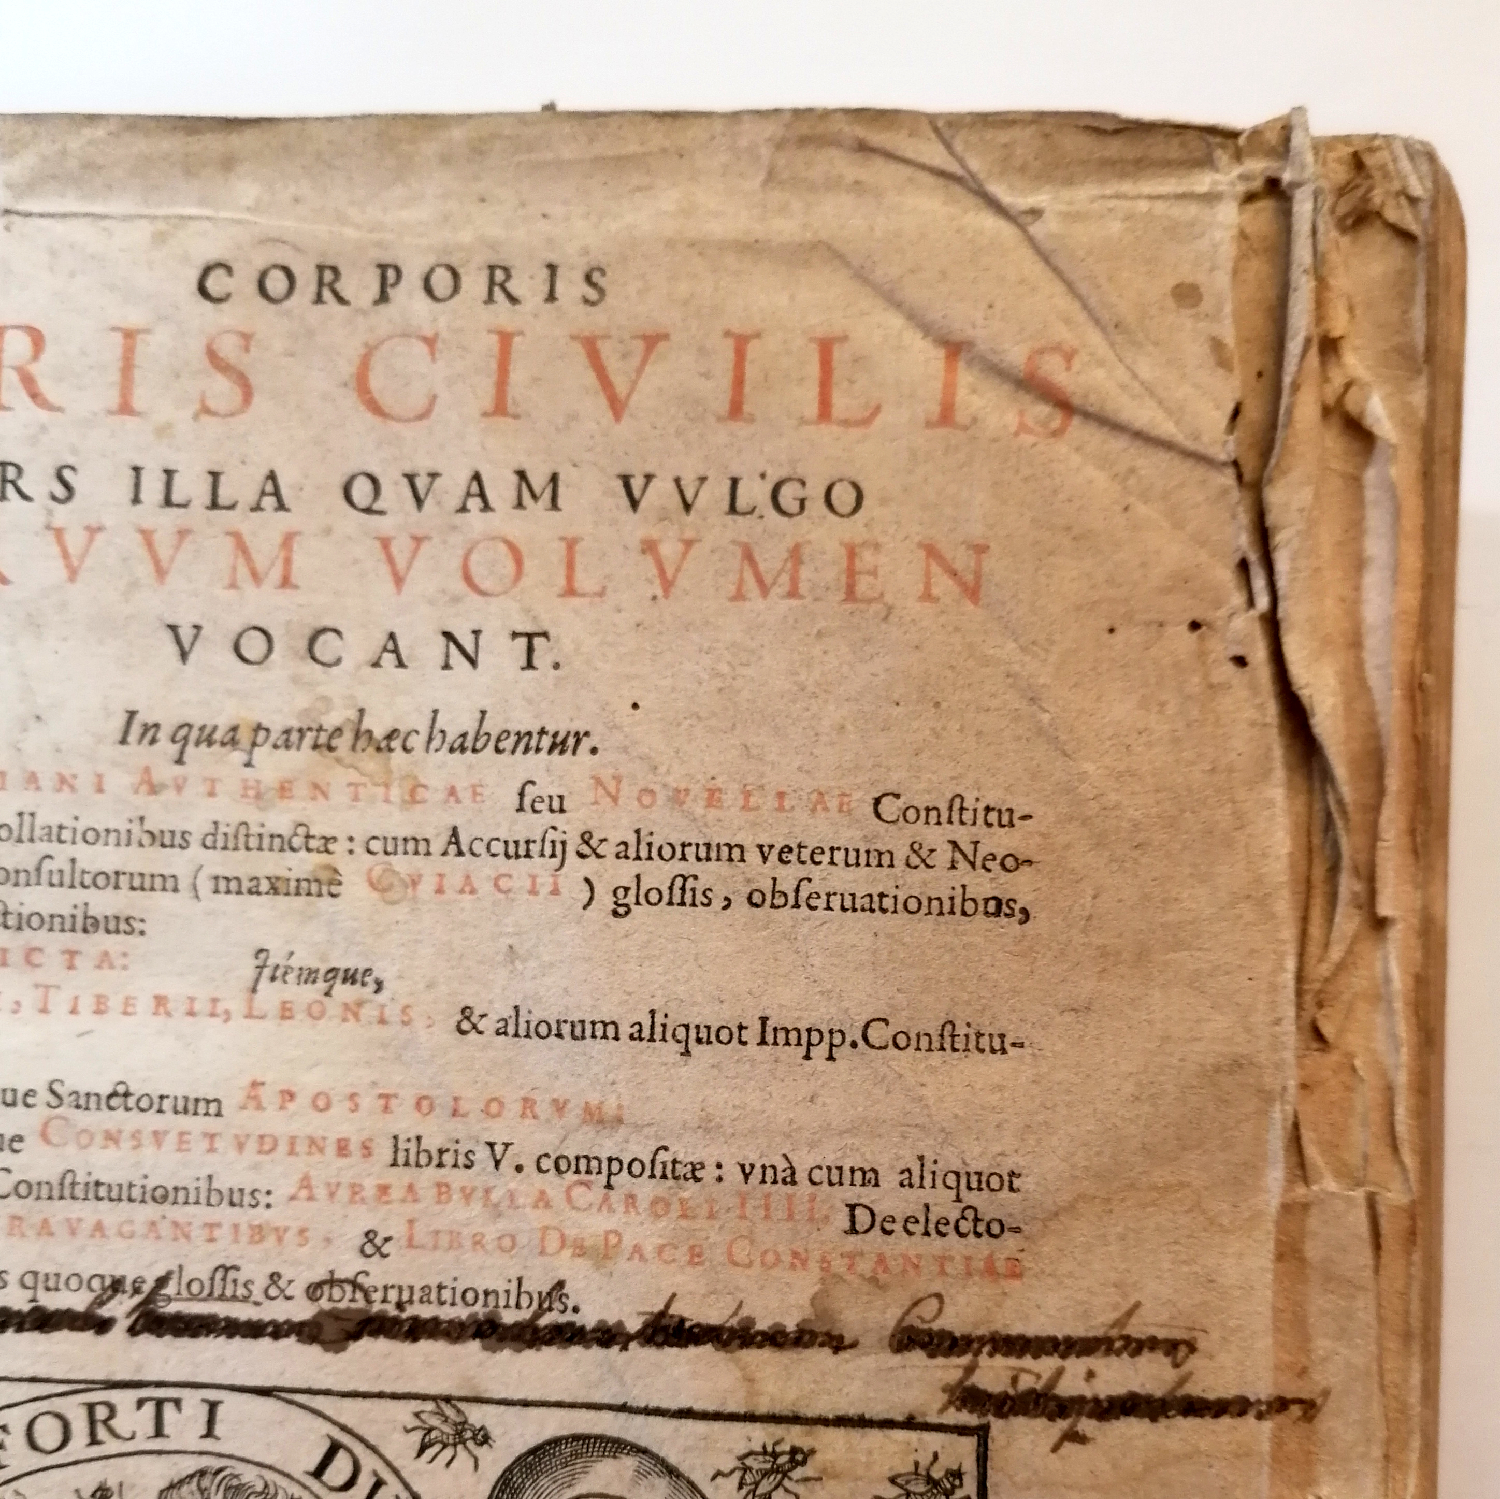 CORPORIS
RIS CIVILIS
RS ILLA QVAM VVLGO
RVVM VOLVMEN
VOCANT.
In qua parte hæc habentur.
IANI AVTHENTICAE ſeu NOVELLAE Conſtitu-
ollationibus diſtinctæ: cum Accurſij & aliorum veterum & Neo-
onſultorum (maximè CVIACII) gloſſis, obſeruationibus,
tionibus:
ICTA: Itémque,
, TIBERII, LEONIS, & aliorum aliquot Impp. Conſtitu-
ue Sanctorum APOSTOLORVM:
ue CONSVETVDINES libris V. compoſitæ: vnà cum aliquot
Conſtitutionibus: AVREA BVLLA CAROLI IIII. De electo-
RAVAGANTIBVS, & LIBRO DE PACE CONSTANTIAE
s quoque gloſſis & obſeruationibus.
FORTI DV